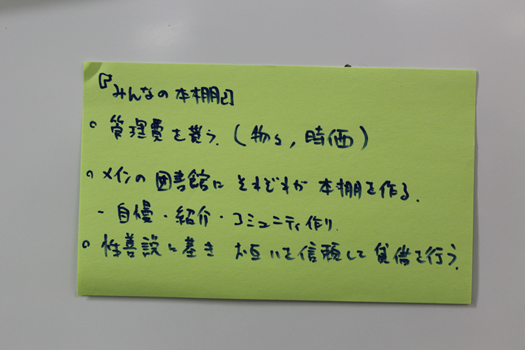 『みんなの本棚』
○ 管理費を貰う.(物々,時価)
○ メインの図書館にそれぞれが本棚を作る.
- 自慢・紹介・コミュニティ作り.
○ 性善説に基きお互いを信頼して貸借を行う.